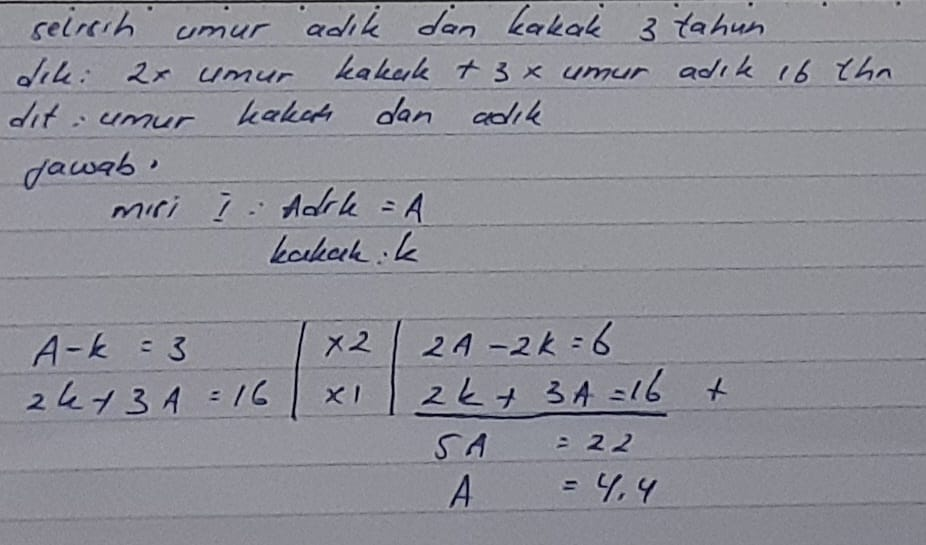 selisih umur adik dan kakak 3 tahun
dik: 2x umur kakak + 3x umur adik 16 thn
dit: umur kakak dan adik
Jawab:
misi I: Adik = A
kakak: k
A-k = 3 | x2 | 2A-2k=6
2k+3A=16 | x1 | 2k+3A=16 +
5A = 22
A = 4,4